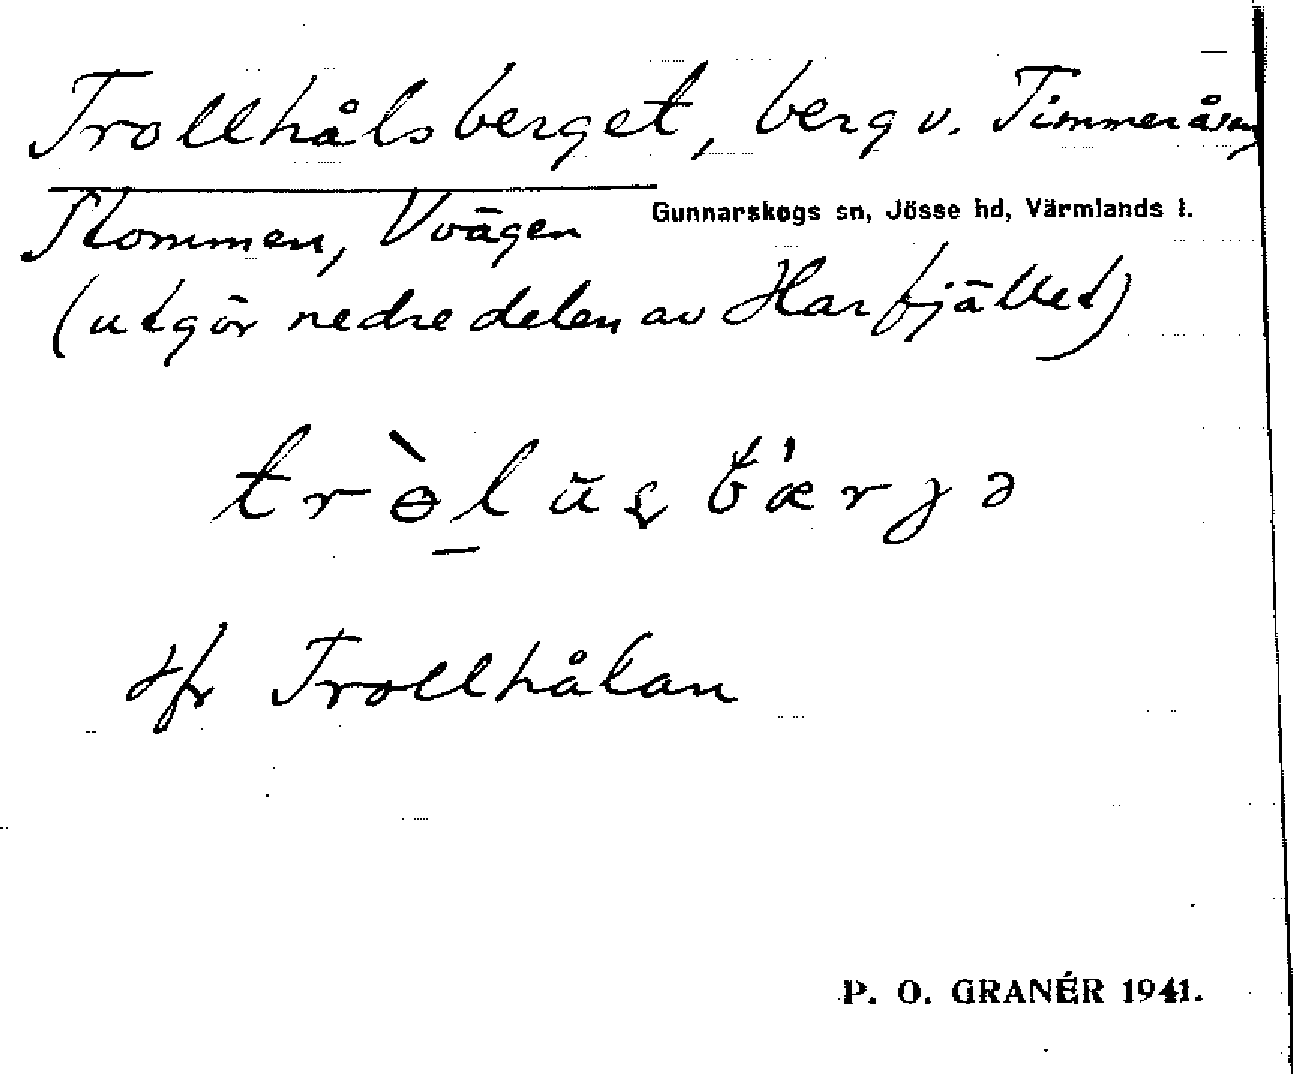 Trollhålsberget, berg v. Timmeråsen,
Gunnarskogs sn, Jösse hd, Värmlands l.
Stommen, Vvägen
(utgör nedre delen av Harfjället)
Jfr Trollhålan
P. O. GRANÉR 1941.